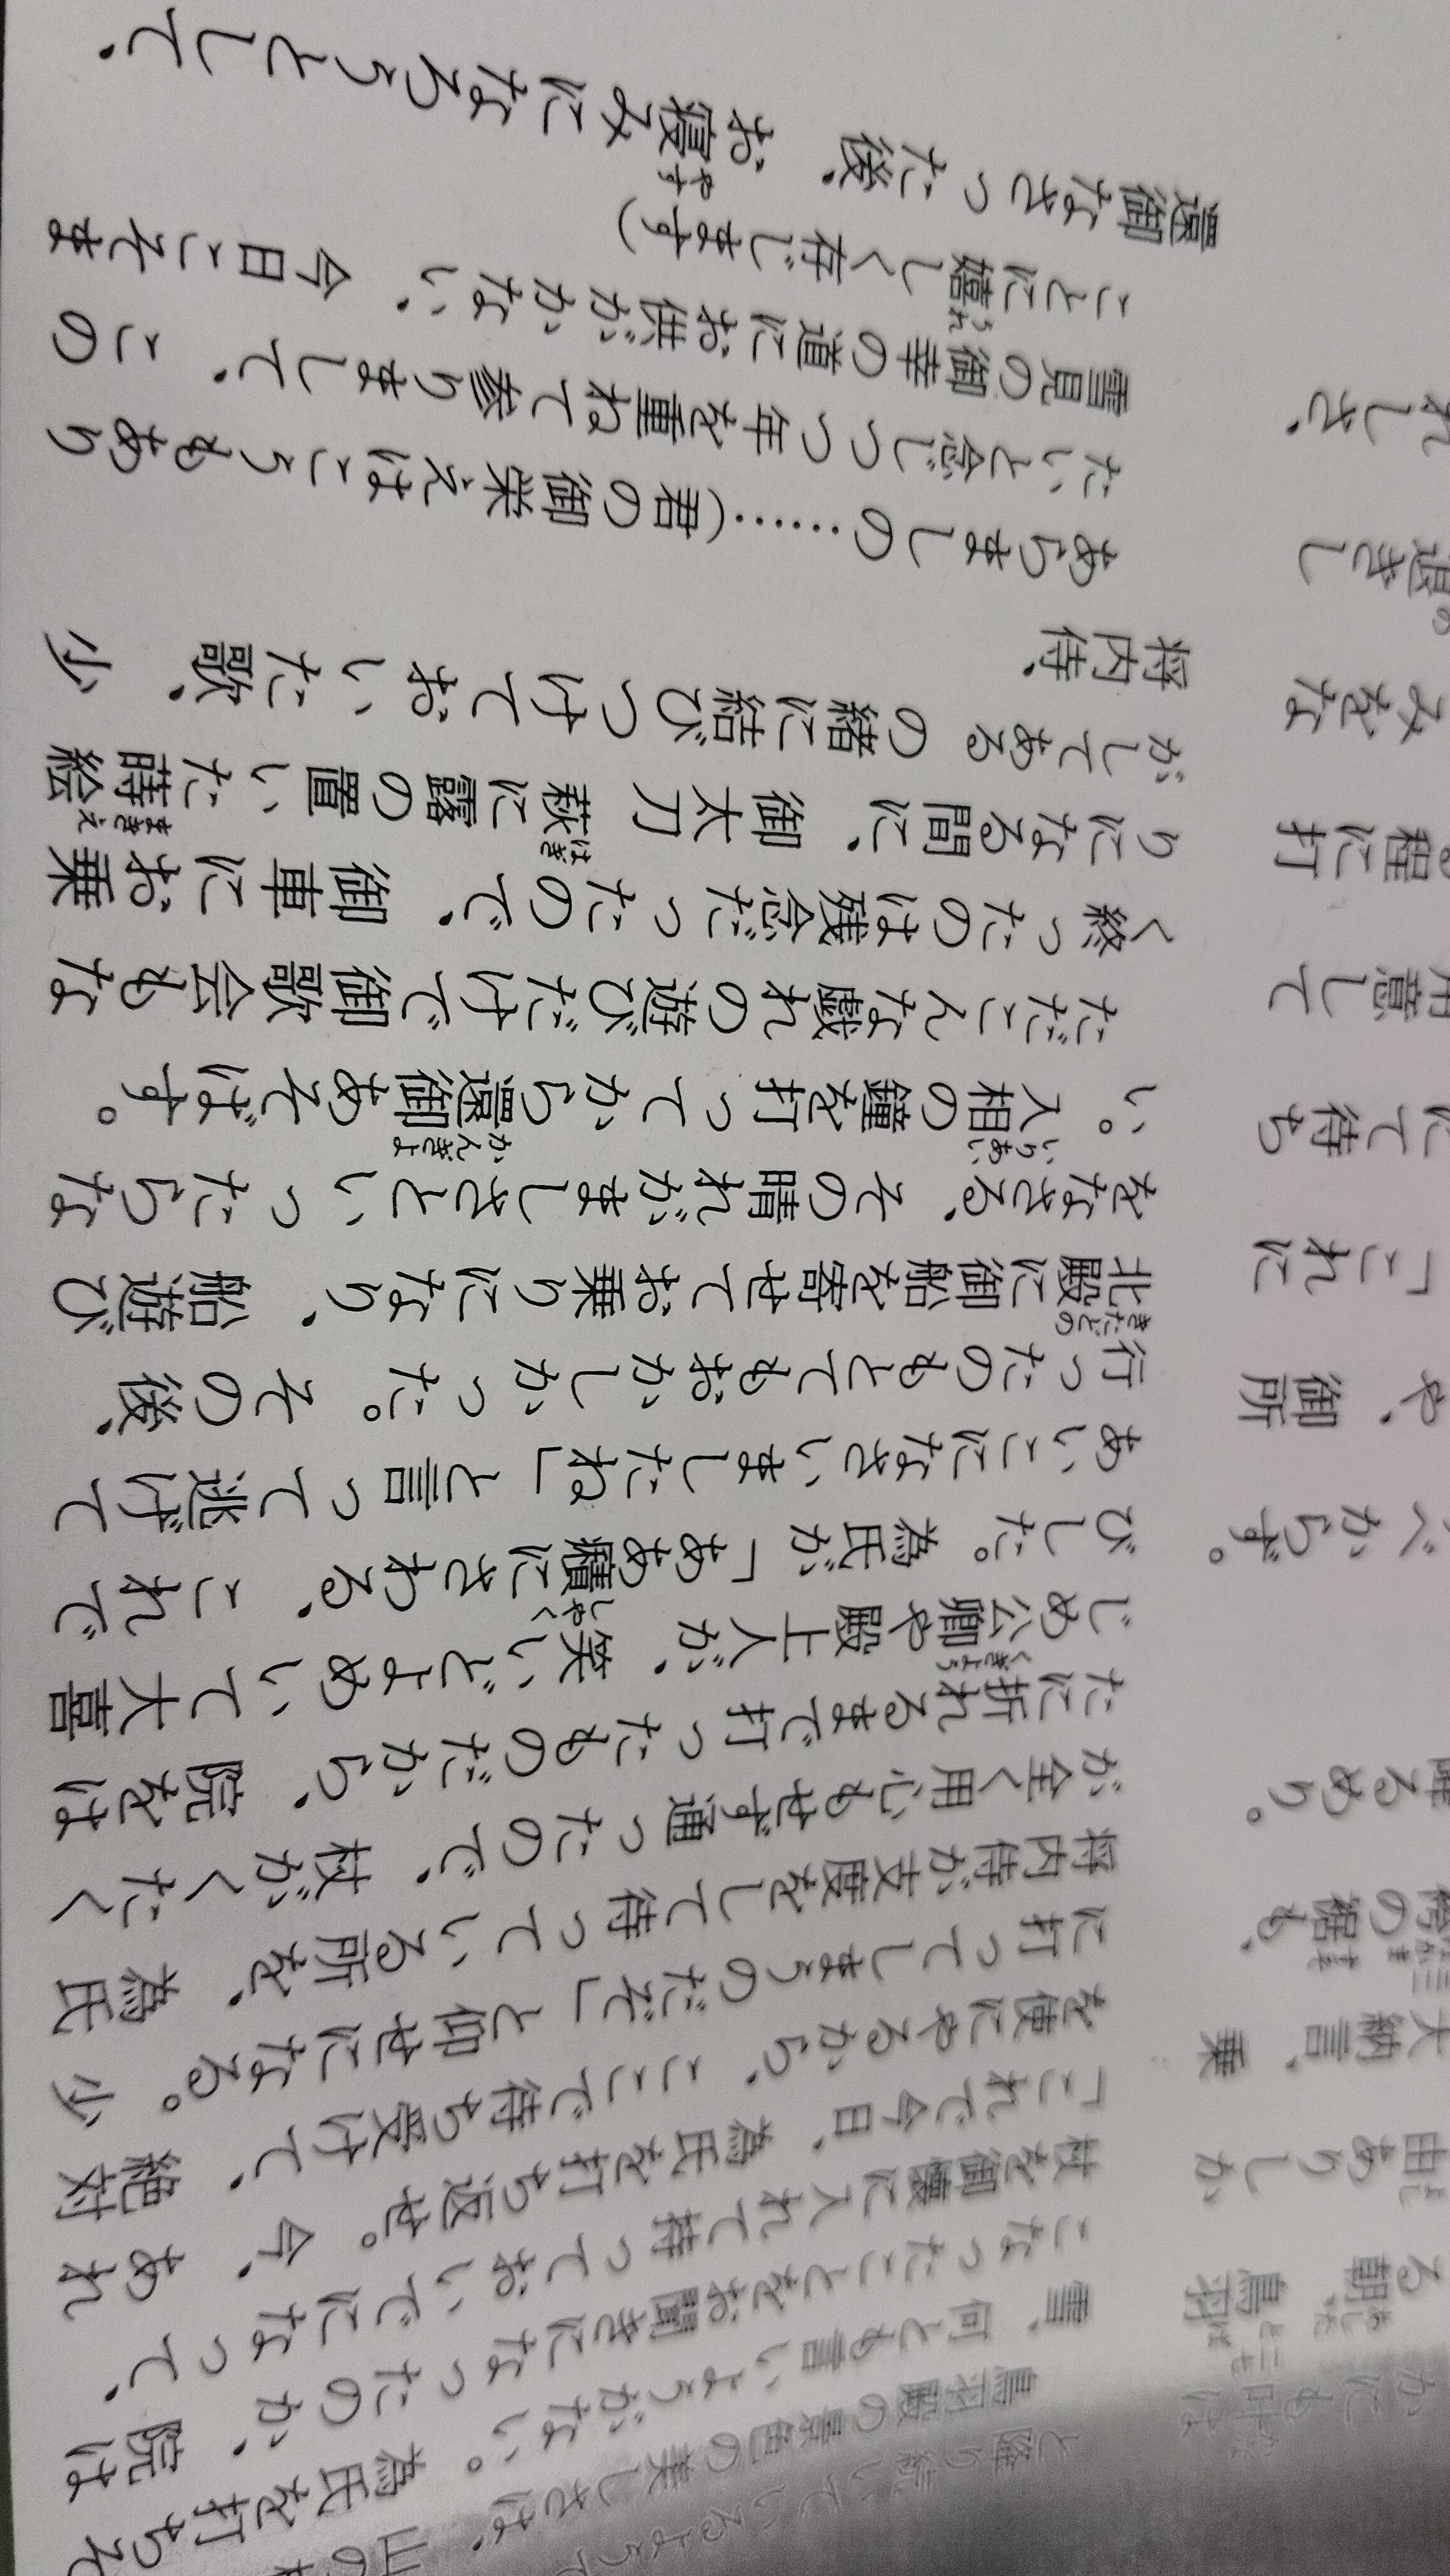 かにも叶は
る朝、鳥羽
由ありしか
大納言、乗
袴の裾も、
降るめり。
べからず。
や、御所
「これに
にて待ち
用意して
程に打
みをな
退きし
れしさ、
と降り続いている
鳥羽殿の景色の美しさは、山の
雪、何とも言いようがない。為氏を打ちそ
こなったことをお聞きになったのか、院は
杖を御懐に入れて持っておいでになって、
「これで今日、為氏を打ち返せ。今、あれ
を使にやるから、ここで待ち受けて、絶対
に打ってしまうのだぞ」と仰せになる。少
将内侍が支度をして待っている所を、為氏
が全く用心もせず通ったので、杖がくたく
たに折れるまで打ったものだから、院をは
じめ公卿や殿上人が、笑いどよめいて大喜
びした。為氏が「ああ癪にさわる、これで
あいこになさいましたね」と言って逃げて
行ったのもとてもおかしかった。その後、
北殿に御船を寄せてお乗りになり、船遊び
をなさる、その晴れがましさといったらな
い。入相の鐘を打ってから還御あそばす。
ただこんな戯れの遊びだけで御歌会もな
く終ったのは残念だったので、御車にお乗
りになる間に、御太刀 萩に露の置いた蒔絵
がしてある の緒に結びつけておいた歌、少
将内侍、
あらましの……(君の御栄えはこうもあり
たいと念じつつ年を重ねて参りまして、この
雪見の御幸の道にお供がかない、今日こそま
ことに嬉しく存じます)
還御なさった後、お寝みになろうとして、